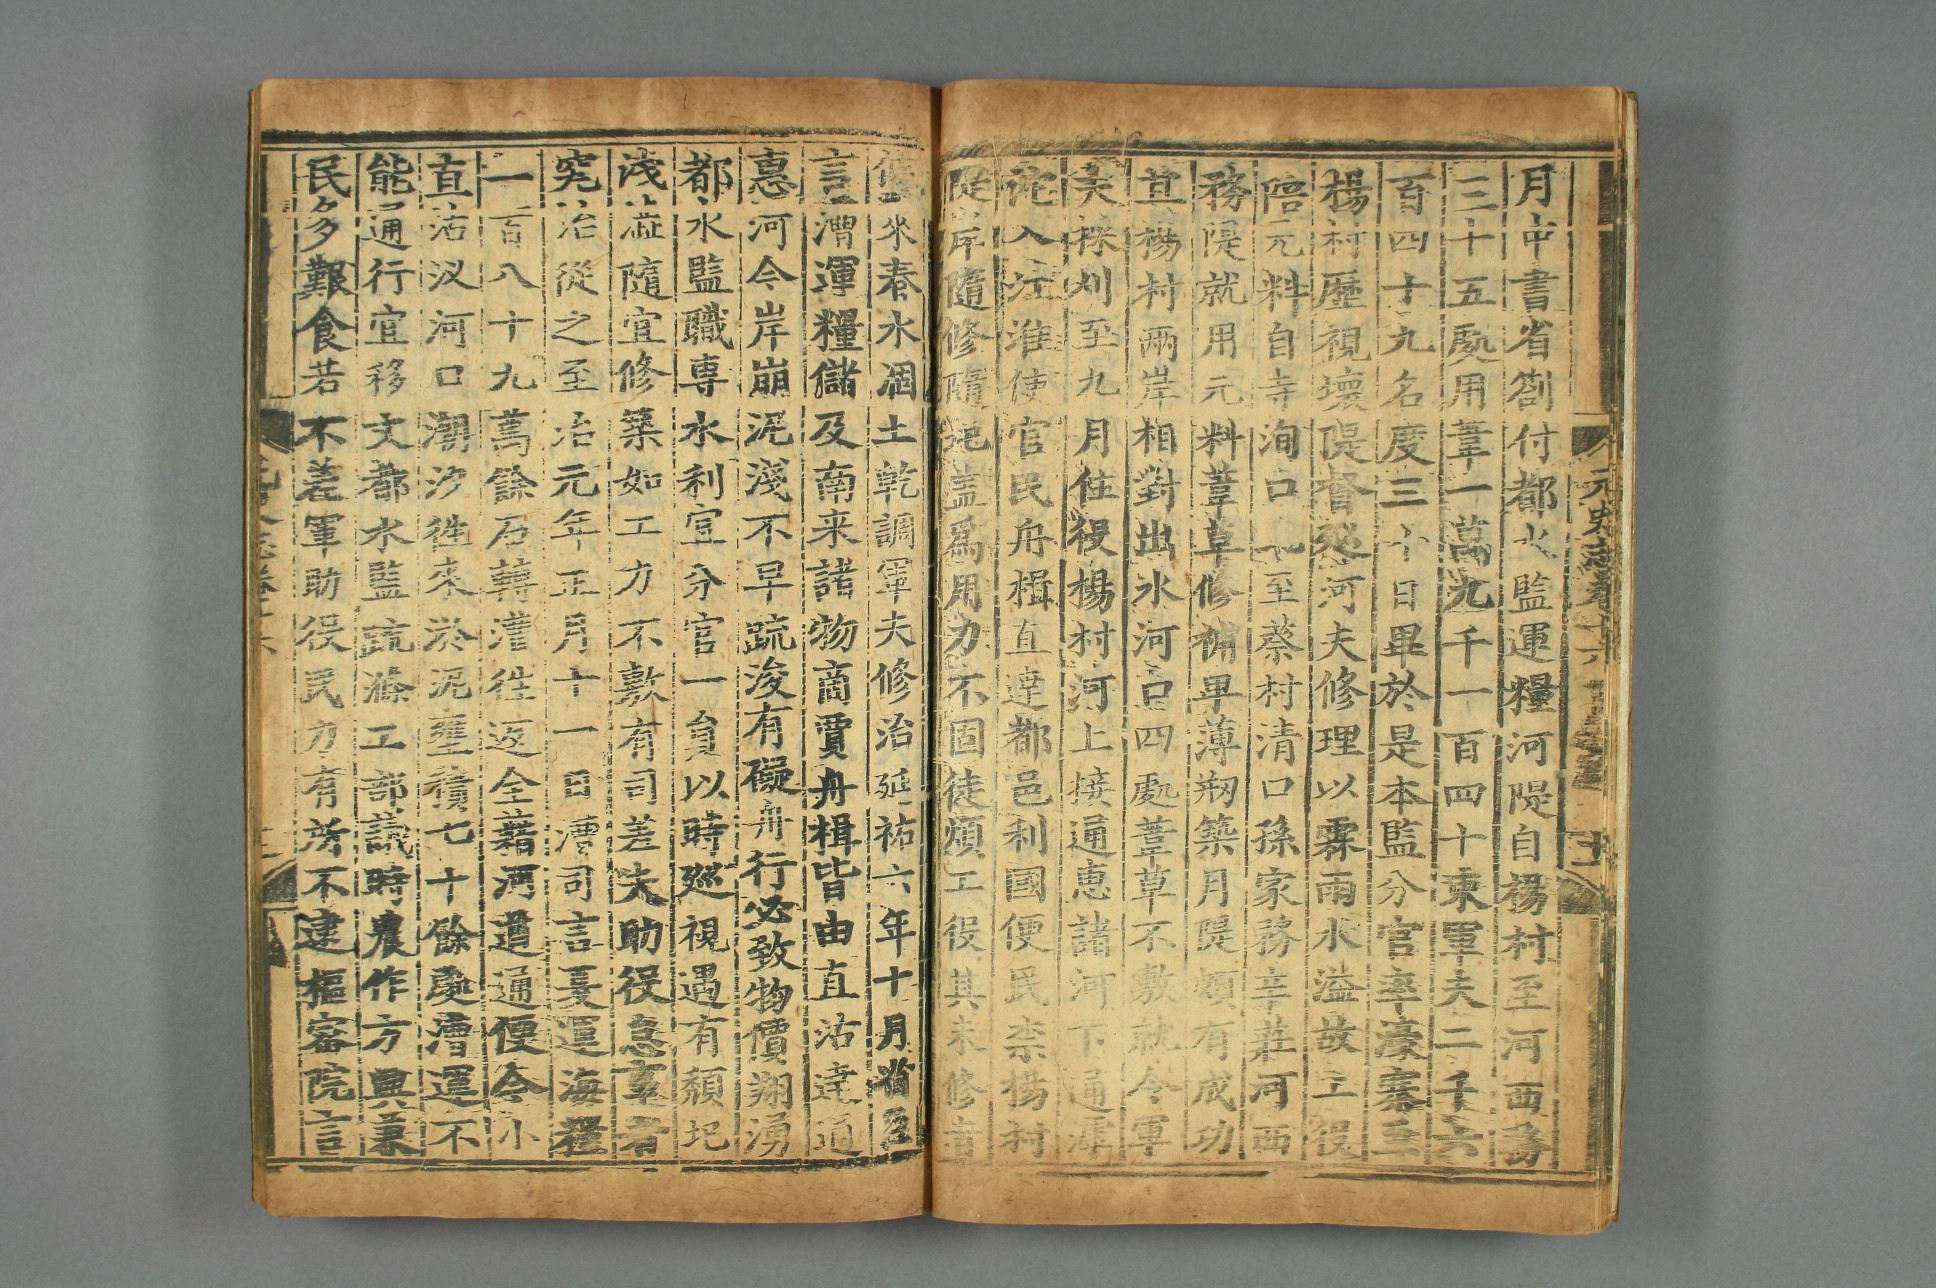 月中書省劄付都水監運糧河隄自楊村至河西務
三十五處用葦一萬九千一百四十束軍夫二千六
百四十九名度三十日畢於是本監分官率濠寨至
楊村歷視壞隄督巡河夫修理以霖雨水溢故工役
倍元料自寺洵口北至蔡村清口孫家務辛莊河西
務隄就用元料葦草修補卑薄剙築月隄頗有成功
其楊村兩岸相對出水河口四處葦草不敷就令軍
夫採刈至九月住役楊村河上接通惠諸河下通滹
沱入江淮使官民舟楫直達都邑利國便民柰楊村
隄岸隨修隨圮蓋爲用力不固徒煩工役其未修者
候來春水涸土乾調軍夫修治延祐六年十月省臣
言漕運糧儲及南来諸物商賈舟楫皆由直沽達通
惠河今岸崩泥淺不早疏浚有礙舟行必致物價翔湧
都水監職専水利宜分官一員以時廵視遇有頹圮
淺澁隨宜修築如工力不敷有司差夫助役怠事者
究治從之至治元年正月十一日漕司言夏運海糧
一百八十九萬餘石轉漕徃返全藉河道通便今小
直沽汊河口潮汐徃來淤泥壅積七十餘處漕運不
能通行宜移文都水監疏滌工部議時農作方興兼
民多艱食若不差軍助役民力有所不逮樞密院言
元史志卷十六
十一